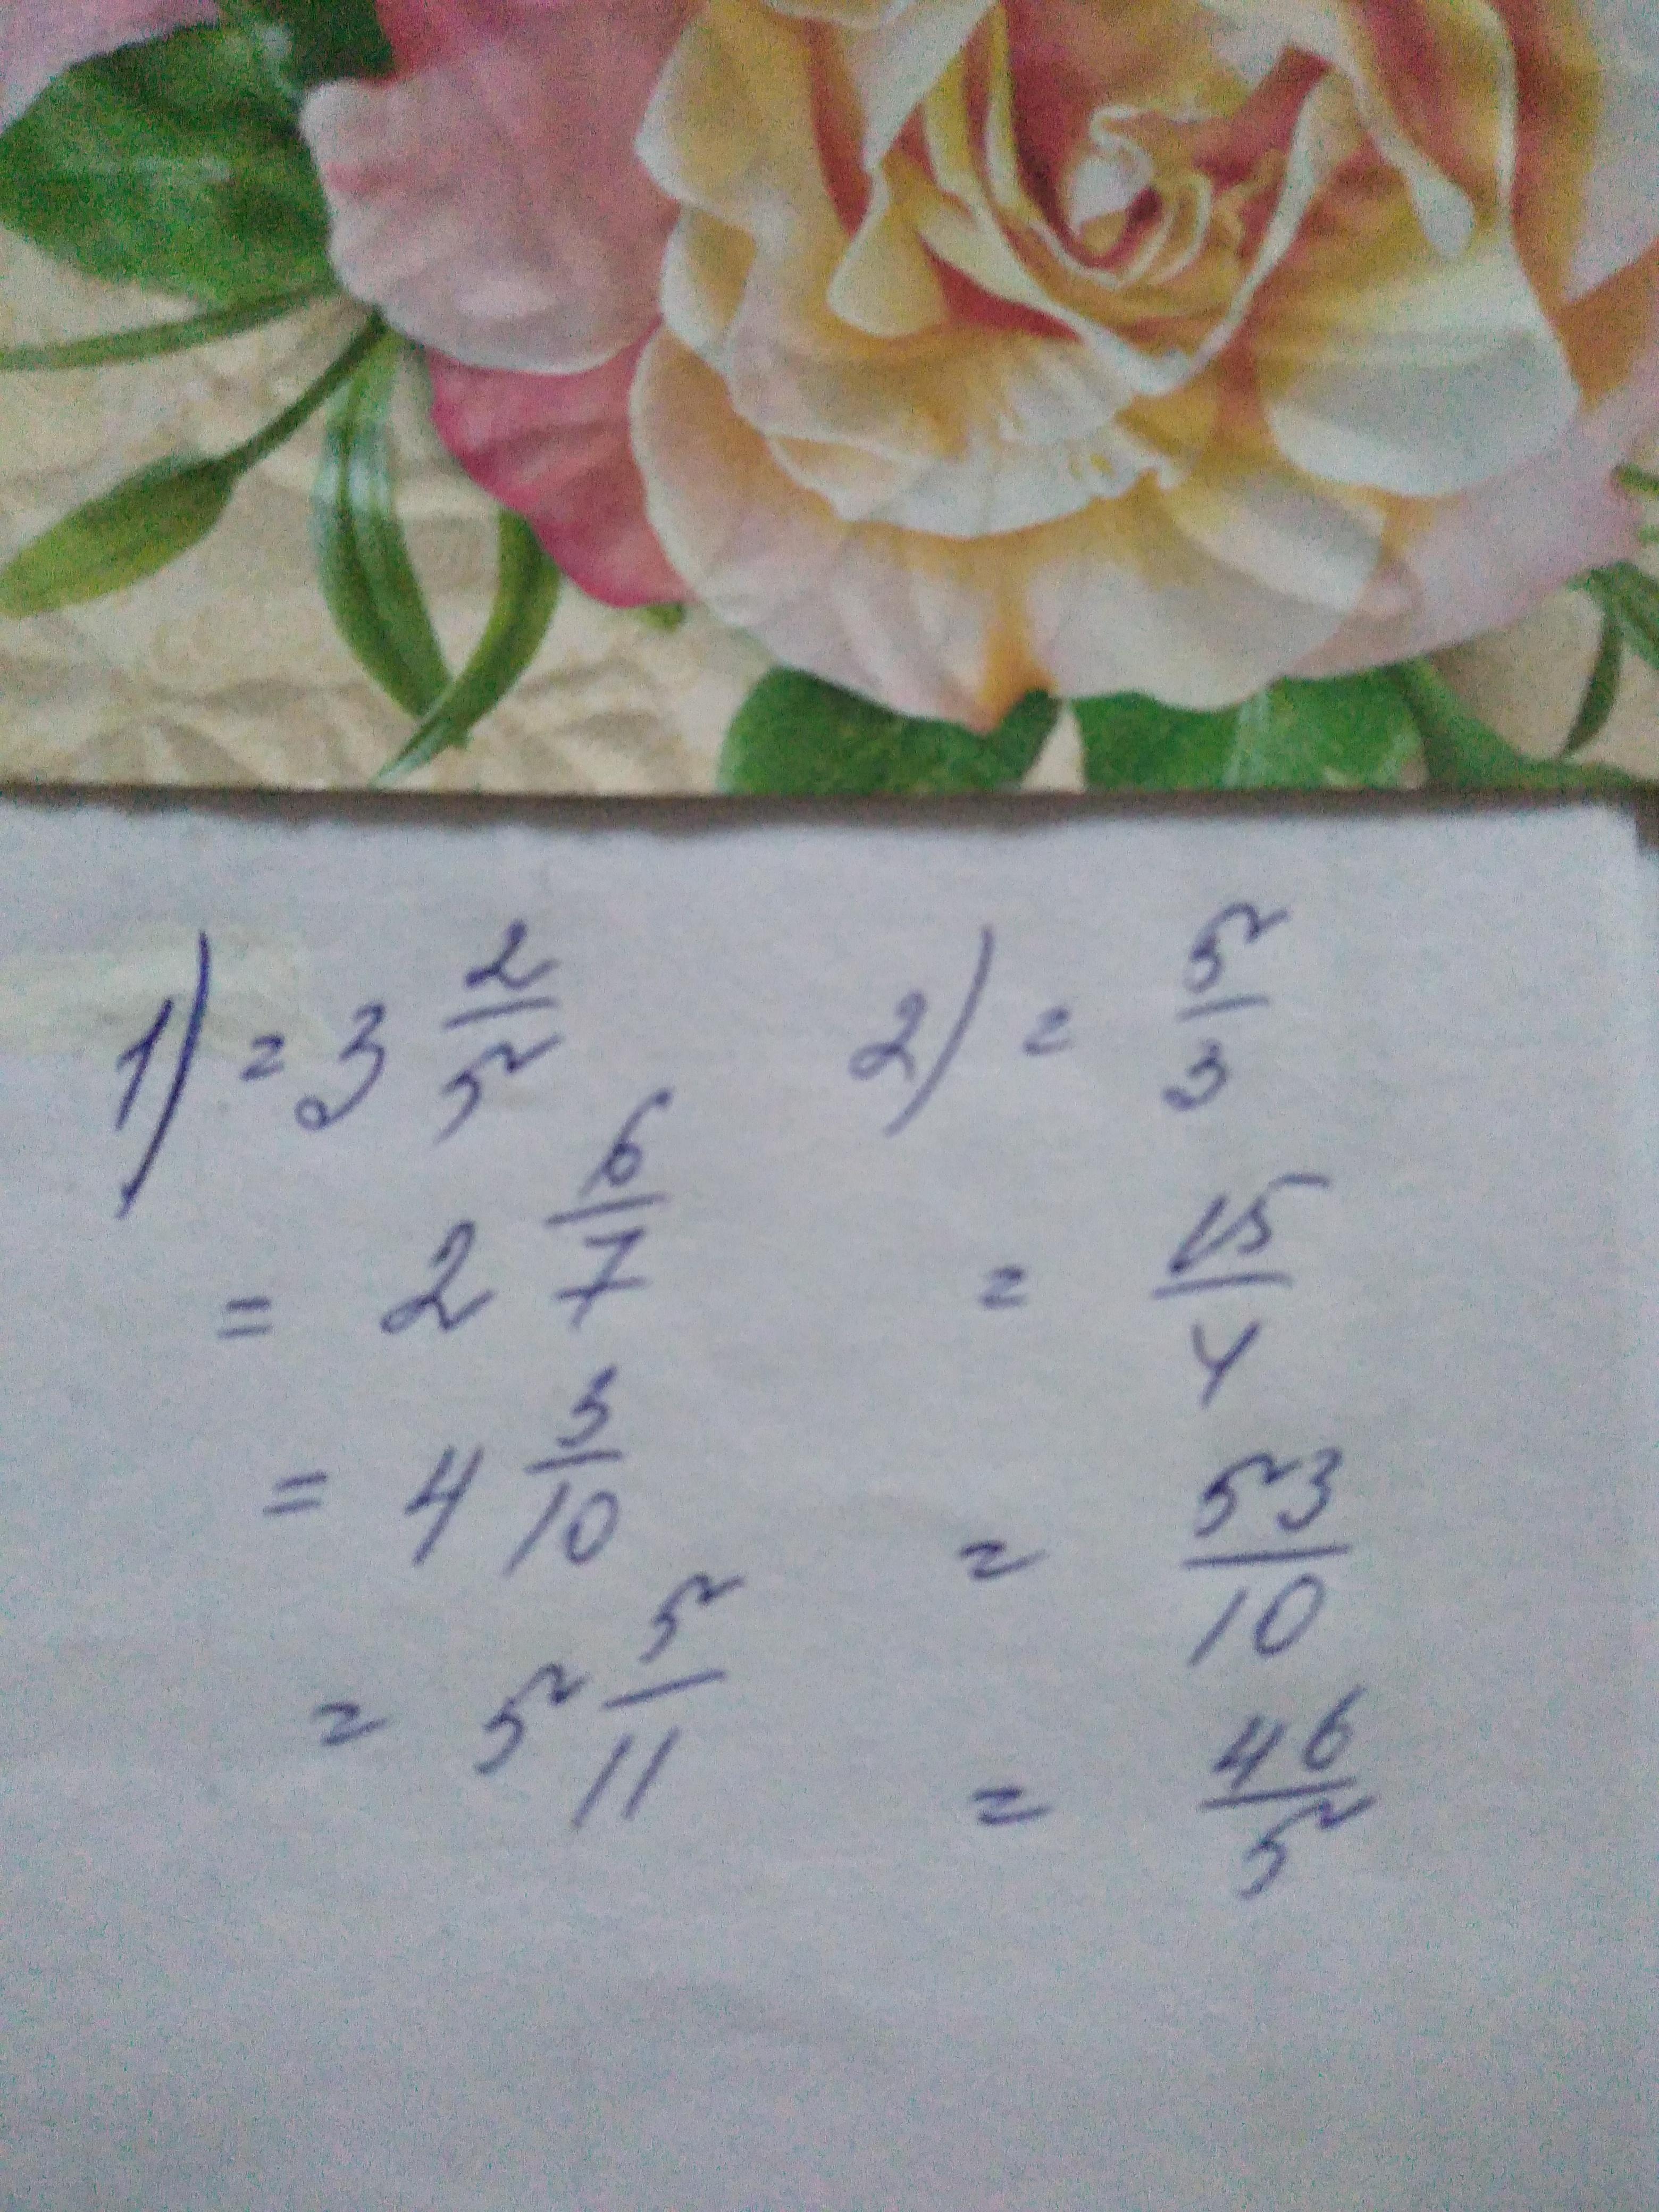 1) = 3 2/5
= 2 6/7
= 4 3/10
= 5 5/11
2) = 5/3
= 15/4
= 53/10
= 46/5